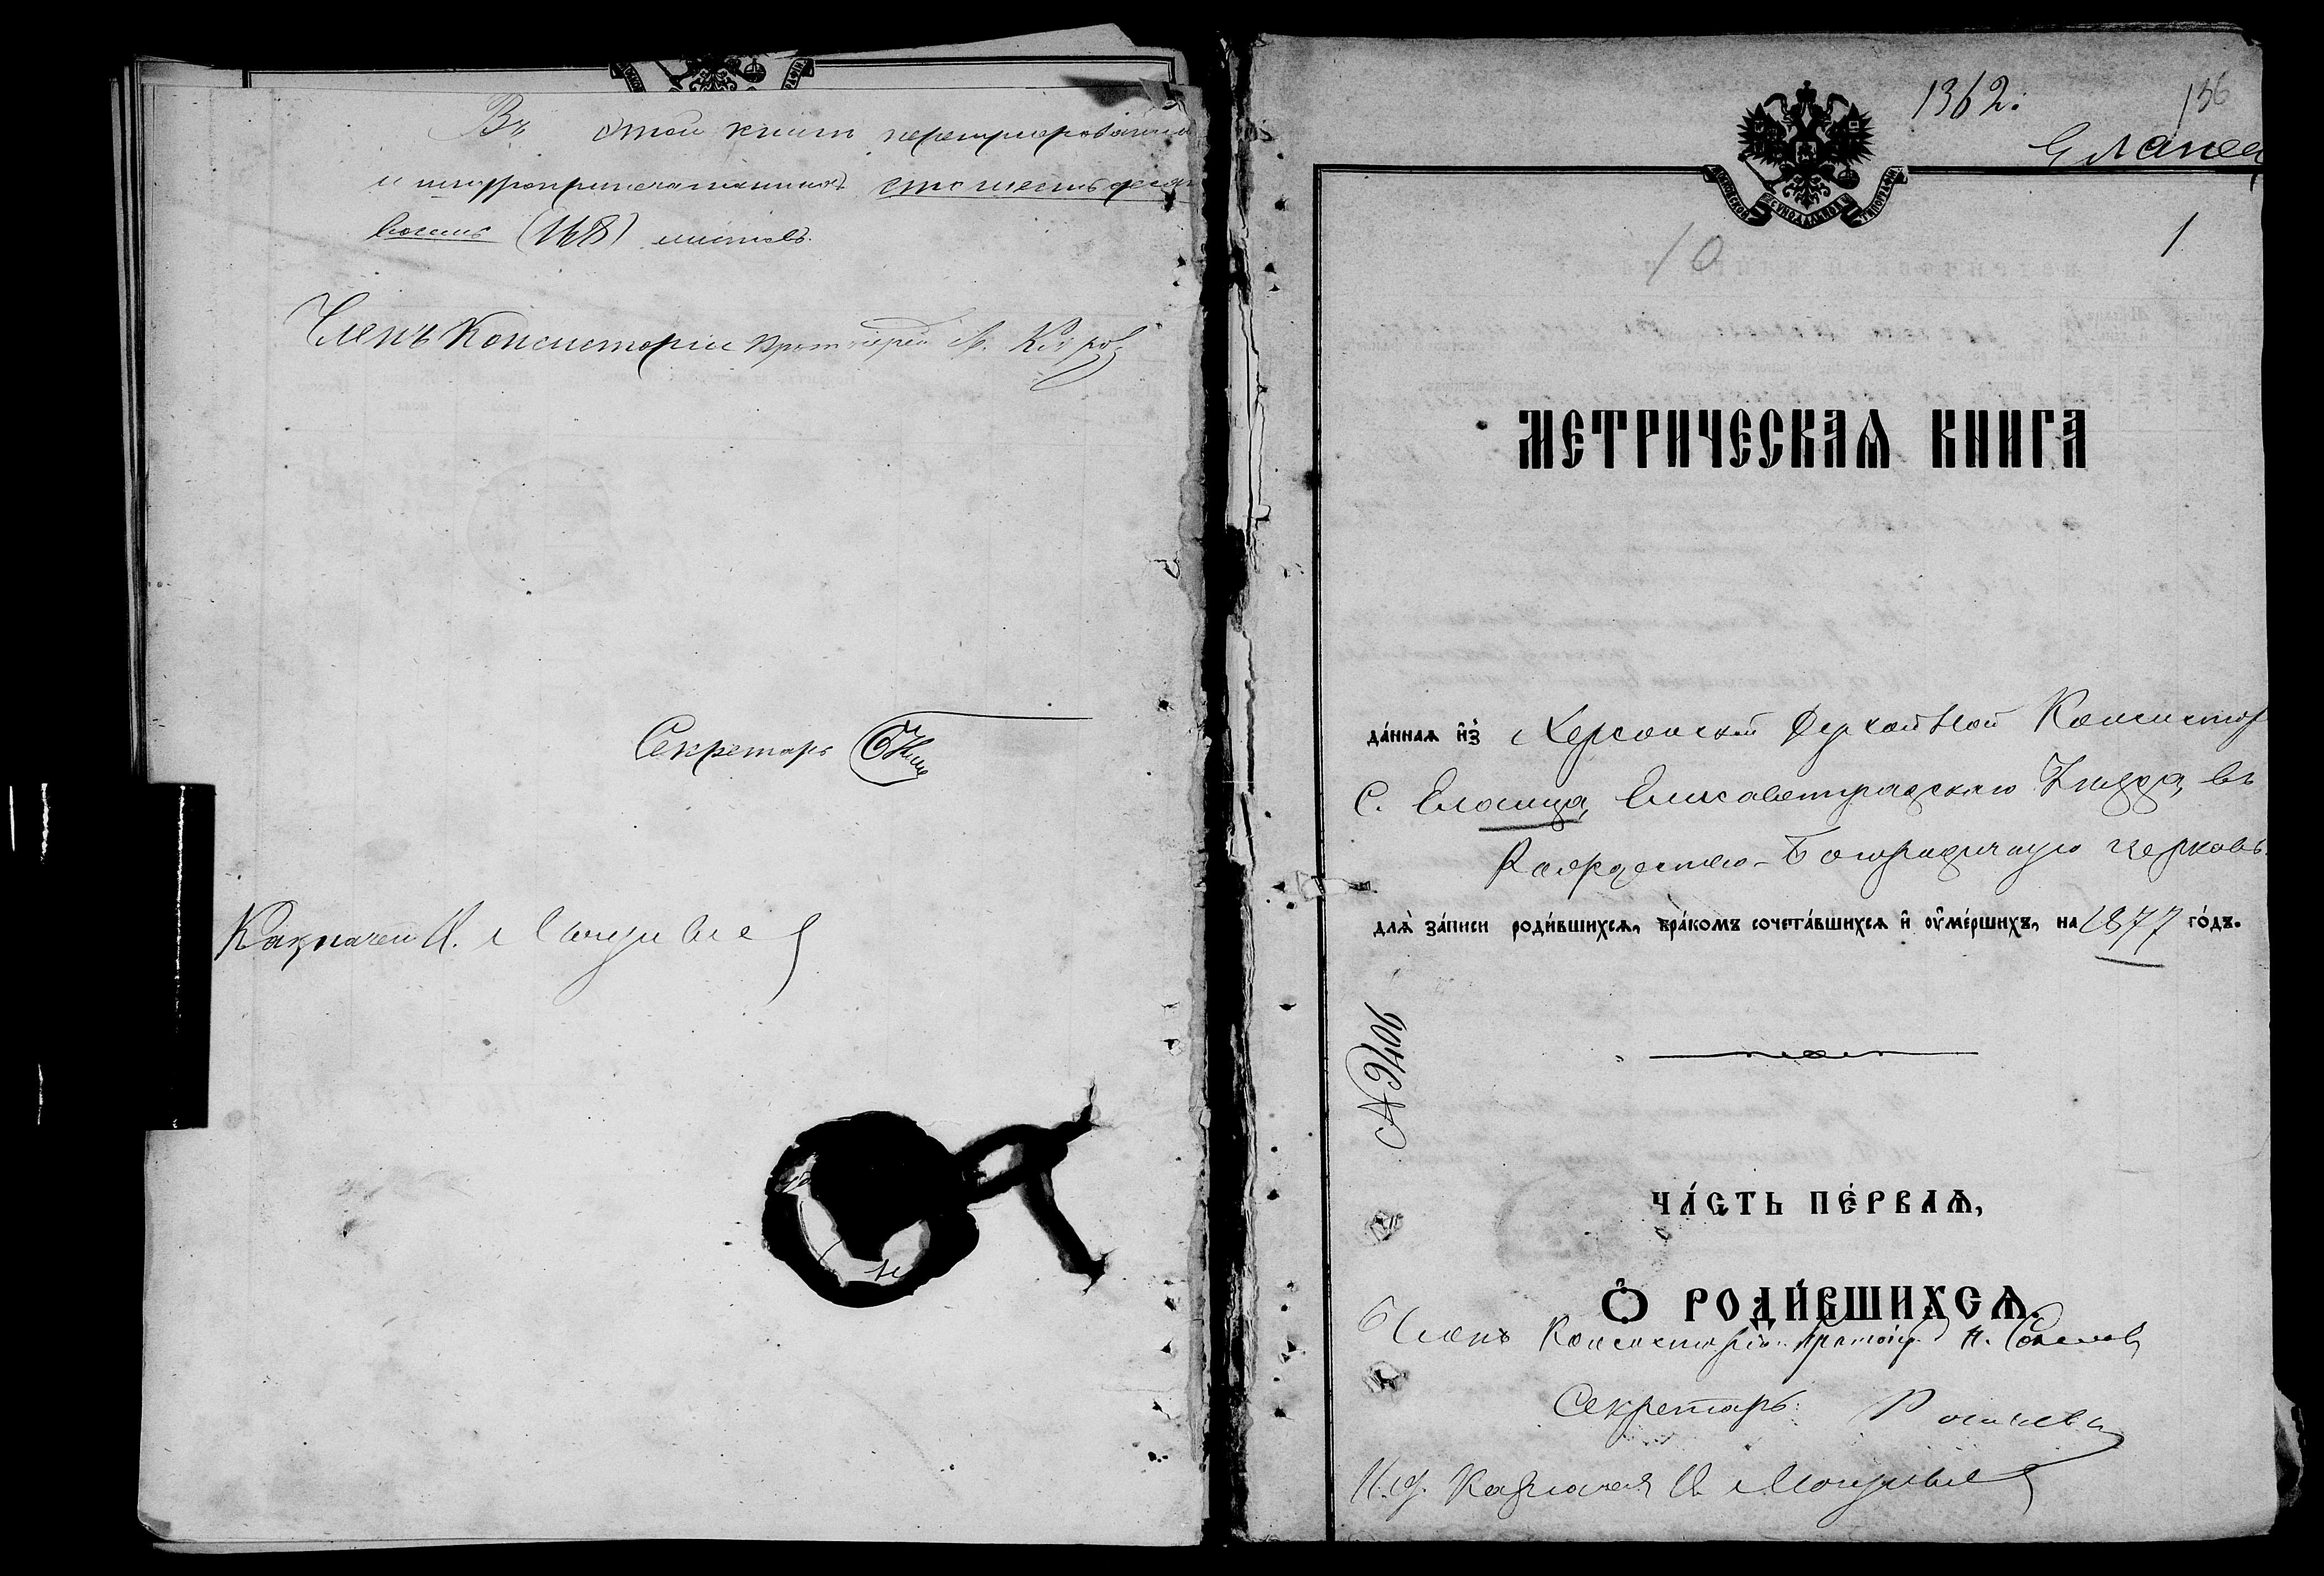 Въ этой книгѣ перенумерованныхъ
и шнуроприпечатанныхъ сто шестьдесятъ
восемь (168) листовъ.
Членъ Консисторіи Протоіерей
Секретарь
Казначей И.
1362.
136
Еланец
МОСКОВСКОЙ СѴНОДАЛЬНОЙ ТИПОГРАФІИ
10
1
МЕТРИЧЕСКАЯ КНИГА
да́нная и҆з̾ Херсонской Духовной Консистор
С. Еланца, Елисаветградскаго Уѣзда, въ
Рождество-Богородичную церковь
для̀ за́писи роди́вшихсѧ, бра́комъ сочета́вшихсѧ и҆ ᲂу҆ме́ршихъ, на 1877 го́дъ.
№ 9406
ЧА́СТЬ ПЕ́РВАѦ,
Ѽ РОДИ́ВШИХСѦ.
Членъ Консисторіи Протоіер. Н.
Секретарь
И. д. Казначея И.